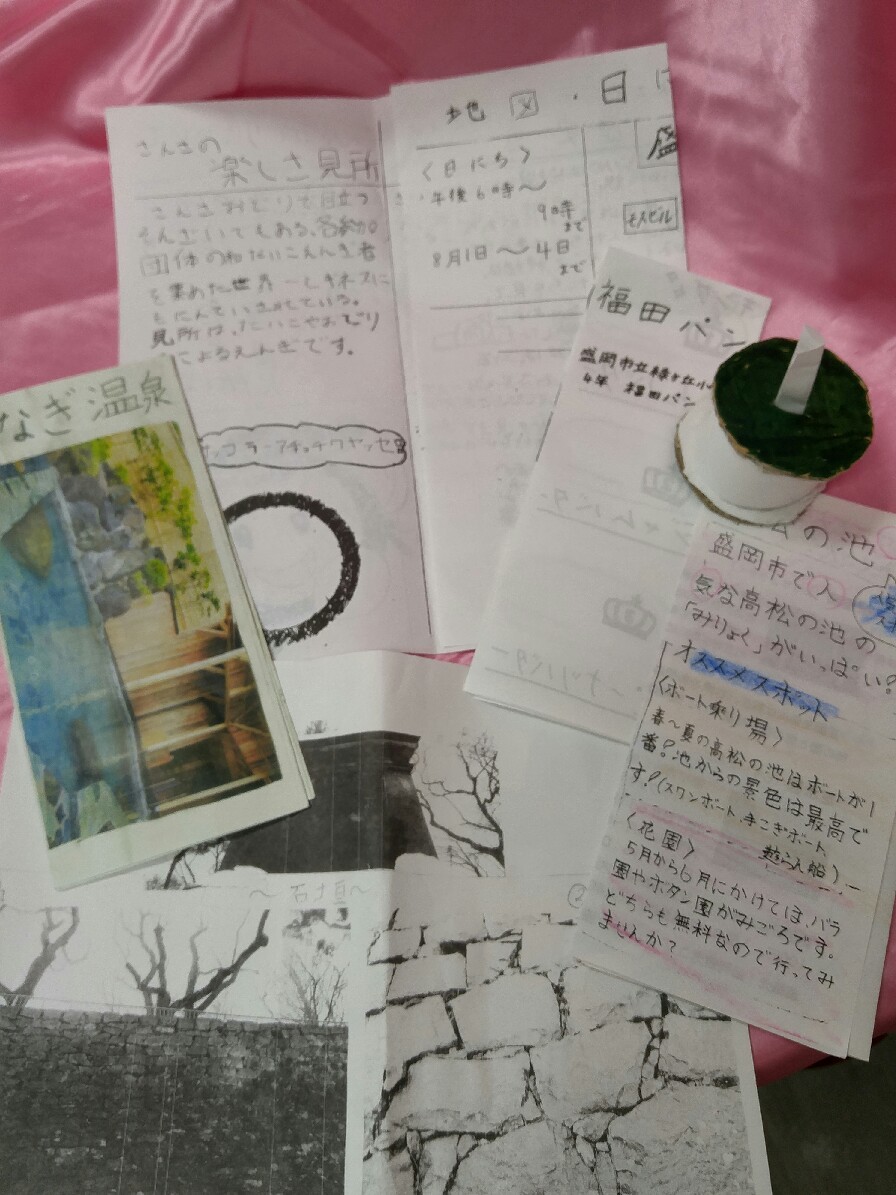 さんさの
楽しさ見所
さんさおどりで目立つ
そんざいでもある、各参加
団体の
を集めた世界一
見所は、たいこやおどり
によるえんぎです。
サッコラーチョイワヤッセ
地図・日に
〈日にち〉
・午後6時～
9時
まで
8月1日～4日
まで
盛
モスビル
福田パン
盛岡市立緑ケ丘小
4年 福田パン
なぎ温泉
ムの池
盛岡市で人
気な高松の池の
「みりょく」がいっぱい?
オススメスポット
〈ボート乗り場〉
春～夏の高松の池はボートが1
番?池からの景色は最高で
す!(スワンボート、手こぎボート、
遊らん船)
〈花園〉
5月から6月にかけては、バラ
園やボタン園がみごろです。
どちらも無料なので行ってみ
ませんか?